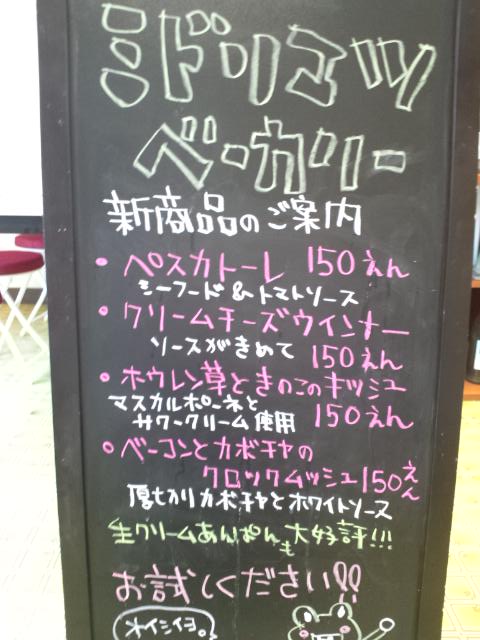 ミドリェッ
ベーカリー
新商品のご案内
・ペスカトーレ 150えん
シーフード&トマトソース
・クリームチーズウインナー
ソースがきめて 150えん
・ホウレン草ときのこのキッシュ
マスカルポーネと
サワークリーム使用 150えん
・ベーコンとカボチャの
クロックムッシュ150えん
厚切りカボチャとホワイトソース
生クリームあんぱんも大好評!!!
お試しください!!
オイシイヨ。